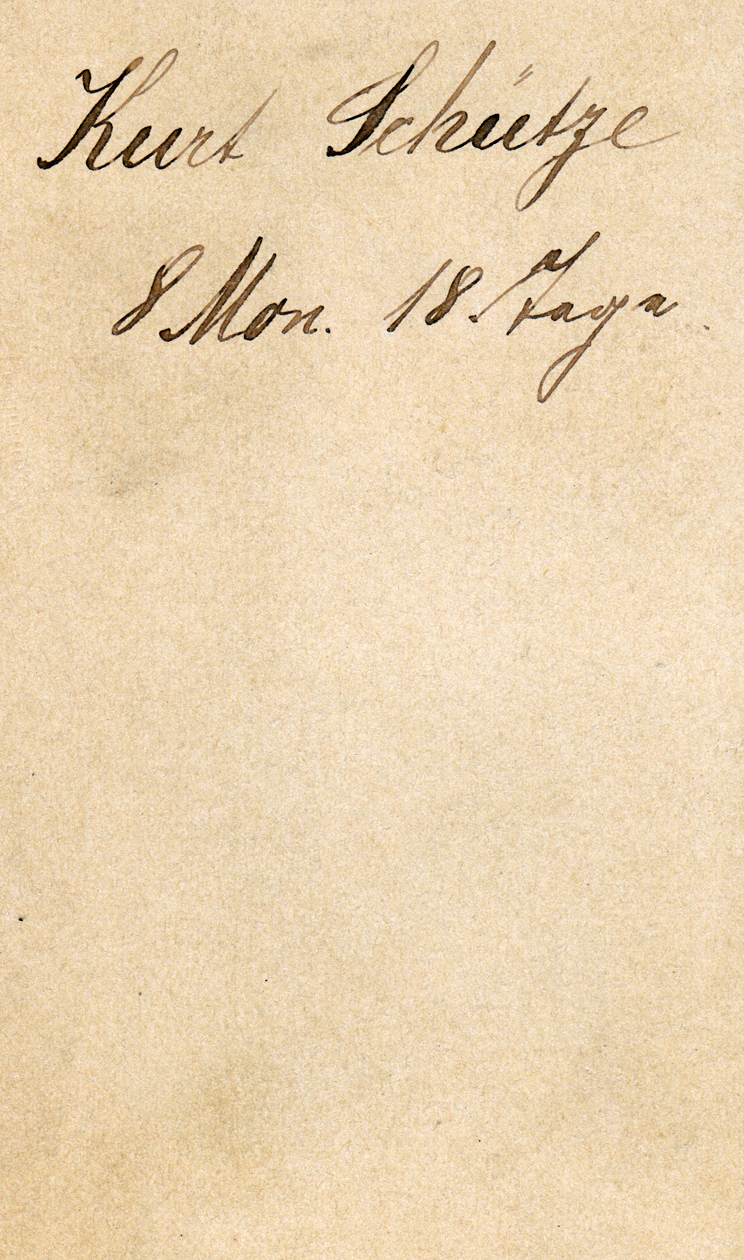 Kurt Schütze
8 Mon. 18. Tage